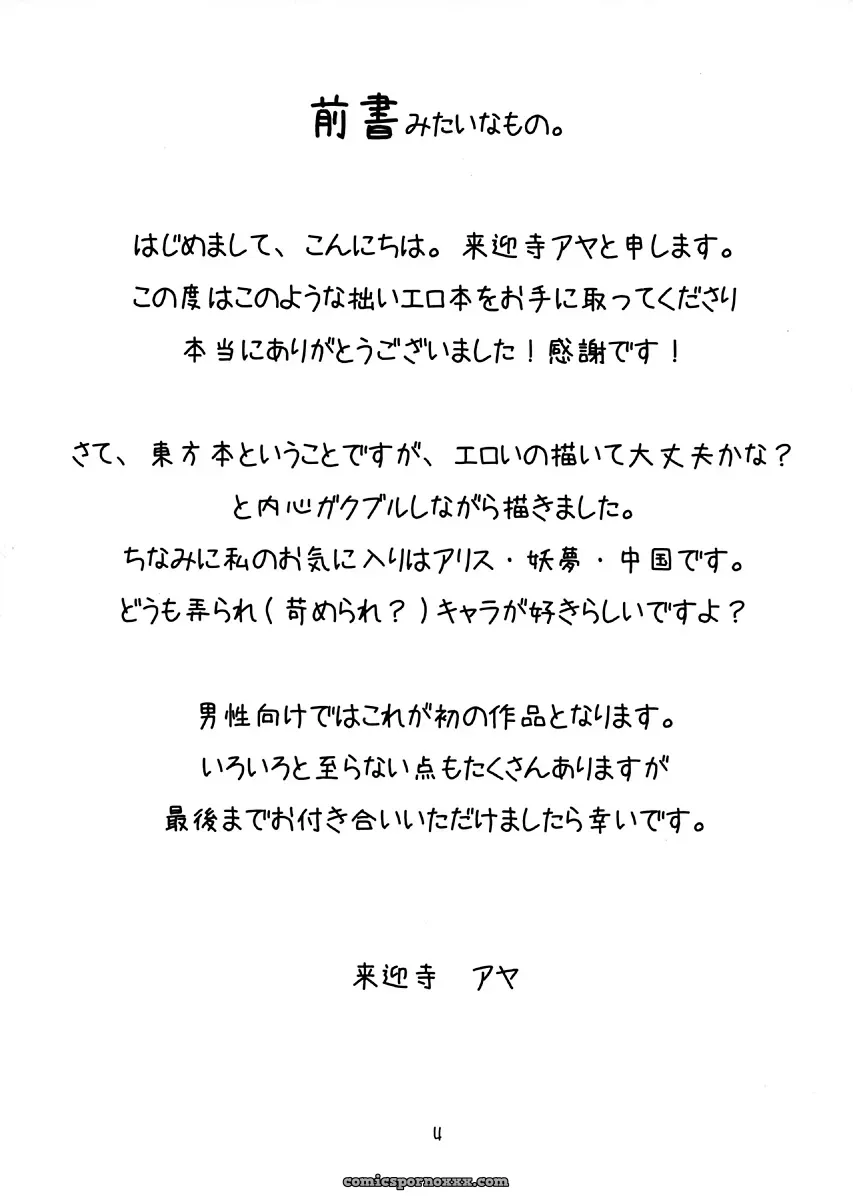 前書みたいなもの。
はじめまして、こんにちは。来迎寺アヤと申します。
この度はこのような拙いエロ本をお手に取ってくださり
本当にありがとうございました！感謝です！
さて、東方本ということですが、エロいの描いて大丈夫かな？
と内心ガクブルしながら描きました。
ちなみに私のお気に入りはアリス・妖夢・中国です。
どうも弄られ(苛められ？)キャラが好きらしいですよ？
男性向けではこれが初の作品となります。
いろいろと至らない点もたくさんありますが
最後までお付き合いいただけましたら幸いです。
来迎寺　アヤ
4
comicspornoxxx.com